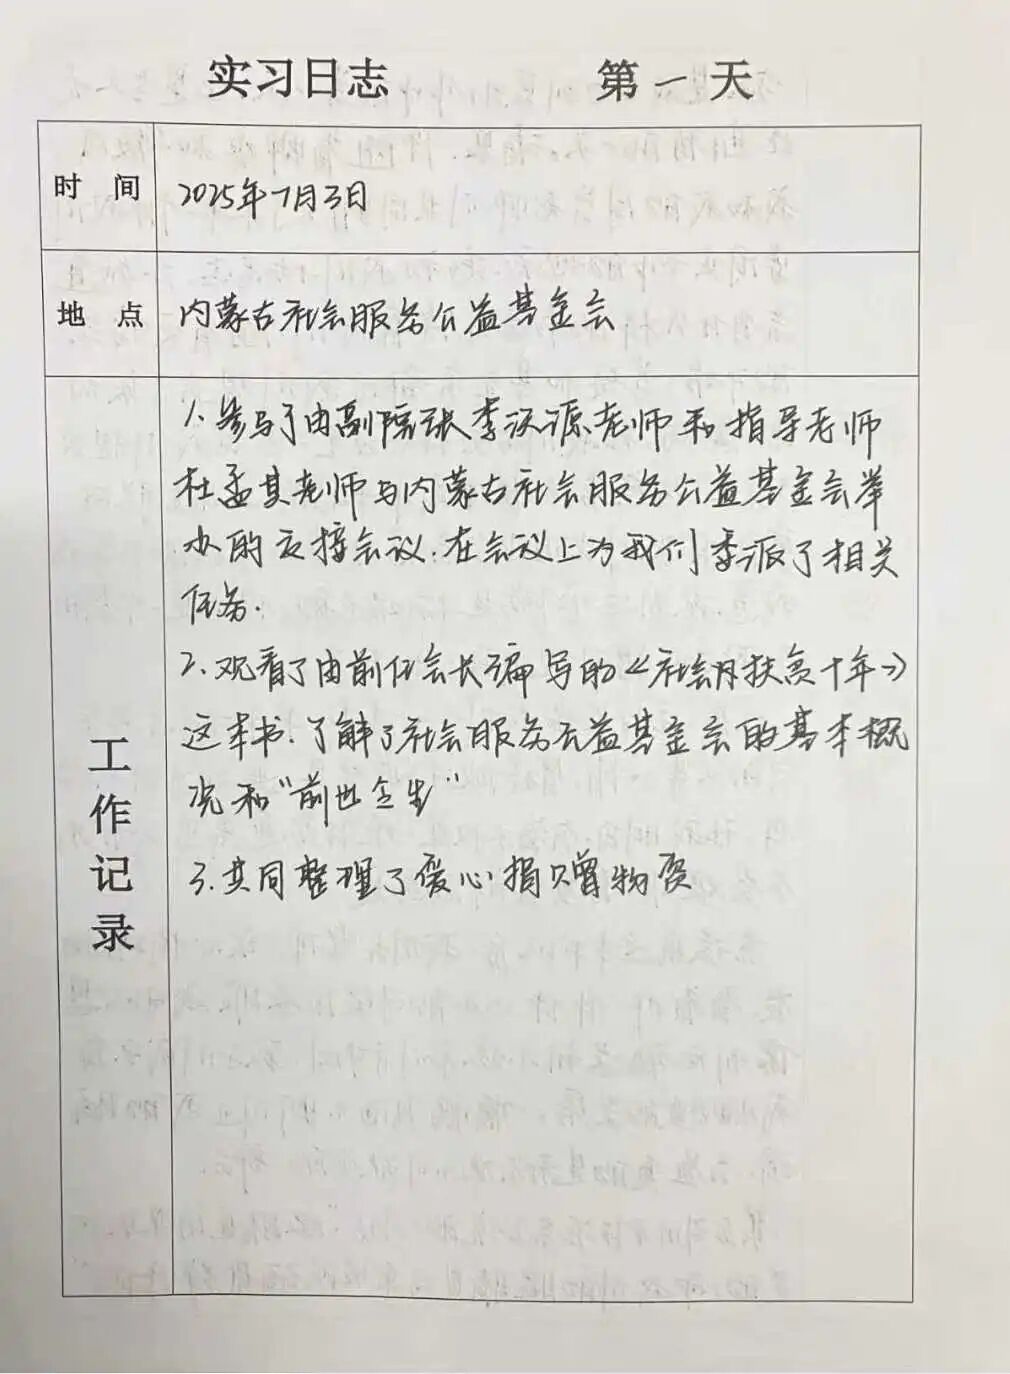 实习日志 第一天
时间 2025年7月3日
地点 内蒙古社会服务公益基金会
工作记录
1. 参与了由副院张李汉源老师和指导老师
杜孟其老师与内蒙古社会服务公益基金会举
办的交接会议.在会议上为我们委派了相关
任务.
2.观看了由前任会长编写的《社会扶贫十年》
这本书.了解了社会服务公益基金会的基本概
况和“前世今生”
3.共同整理了爱心捐赠物资